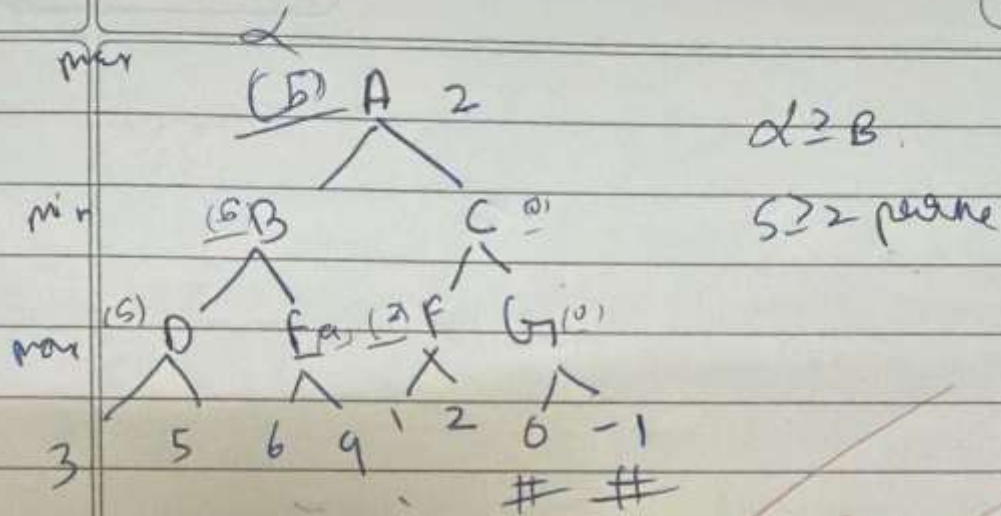 α
max (5) A 2
α ≥ B.
min (5) B C (0)
5 ≥ 2 prune
max (5) D E 9, (2) F G (0)
3 5 6 9 1 2 0 -1
# #